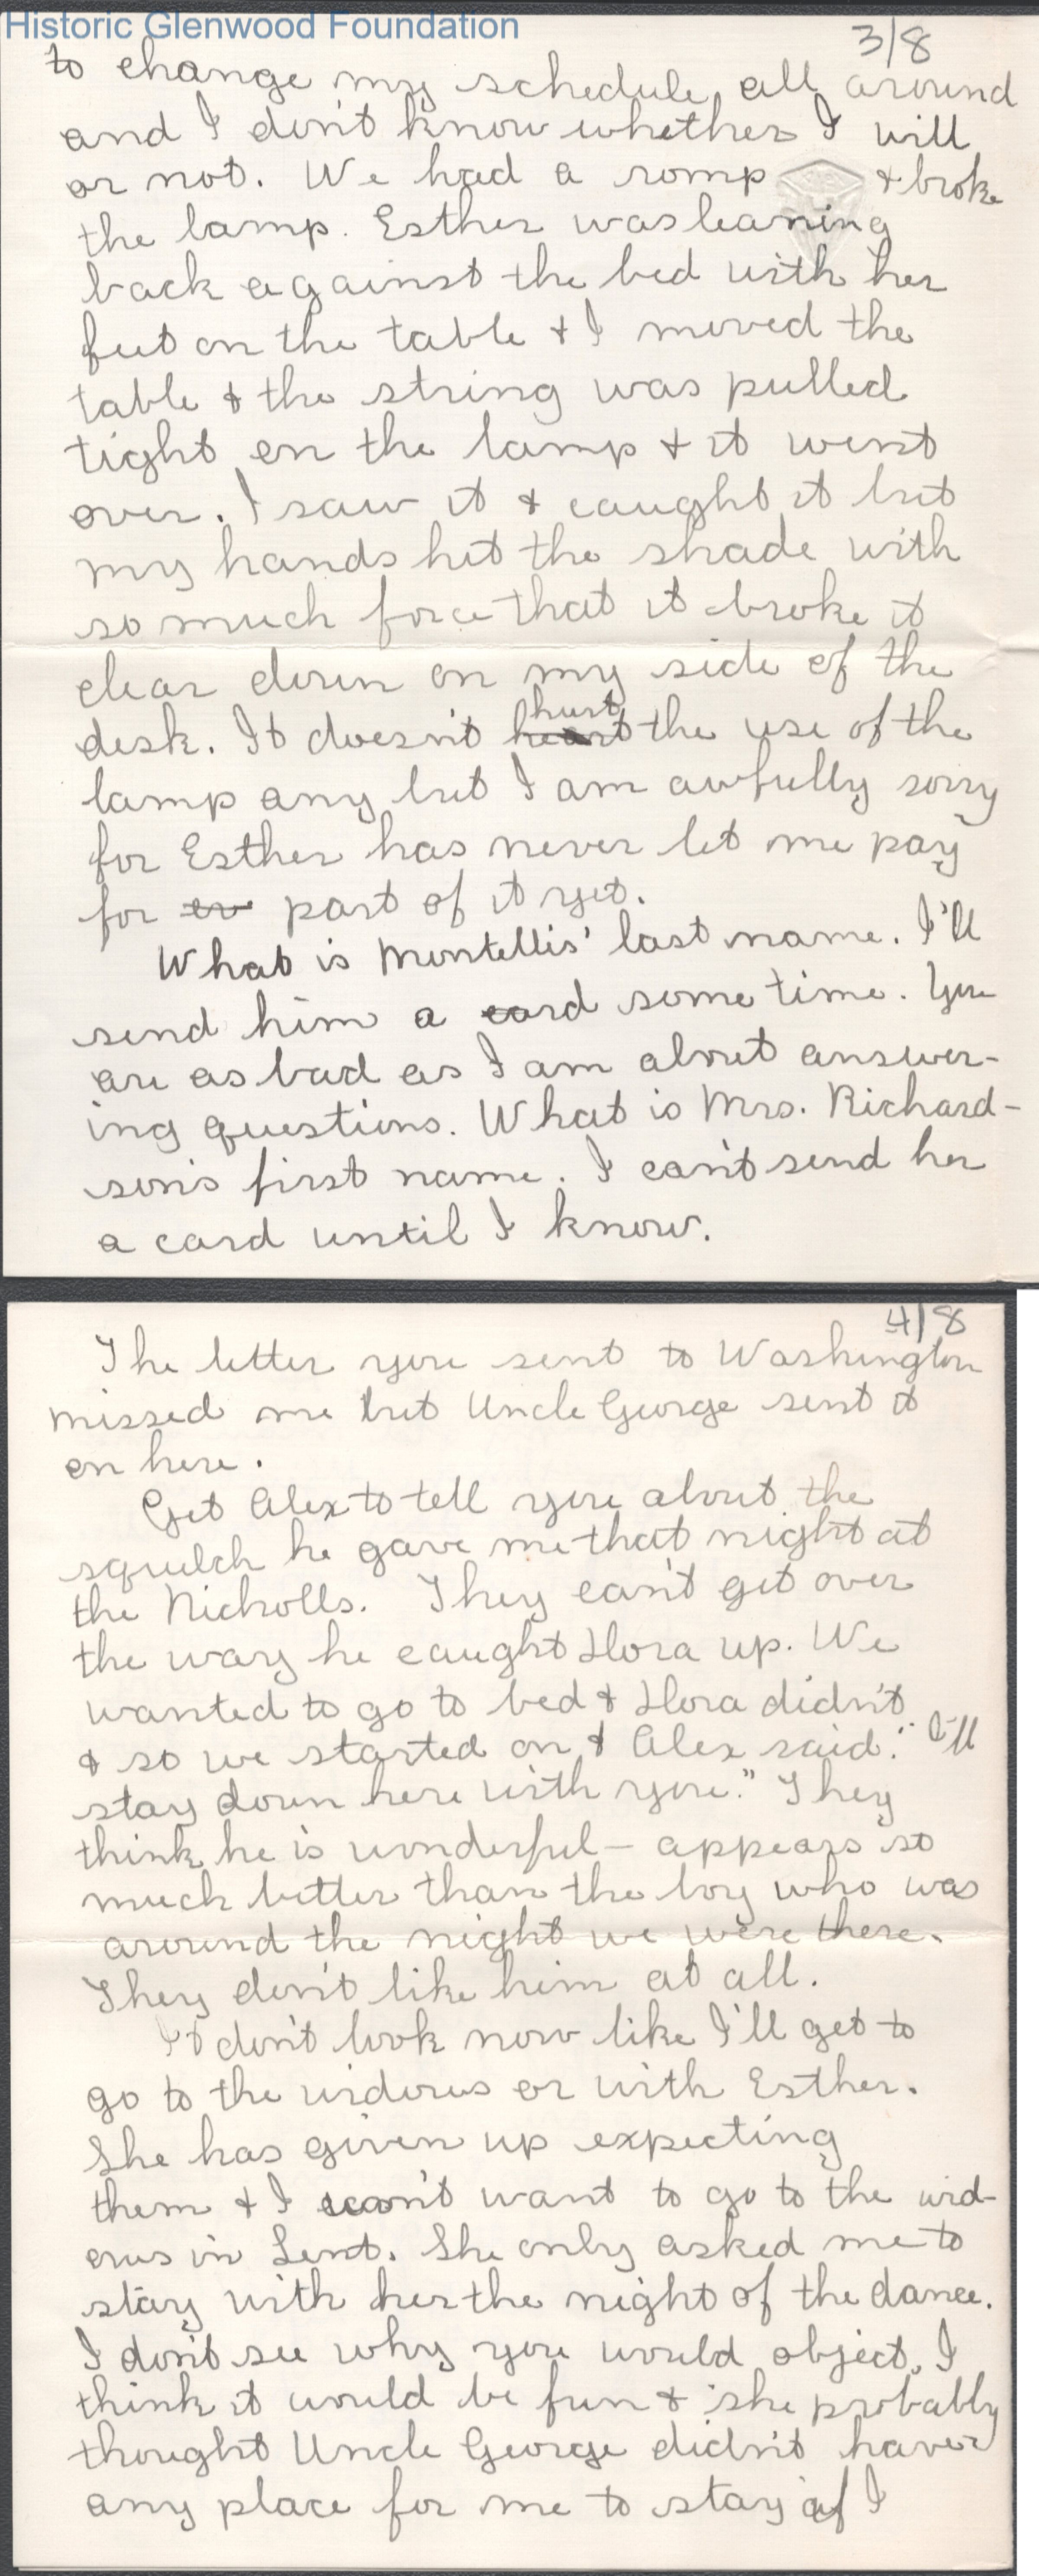 Historic Glenwood Foundation
3/8
to change my schedule all around
and I don't know whether I will
or not. We had a romp & broke
the lamp. Esther was leaning
back against the bed with her
feet on the table & I moved the
table & the string was pulled
tight on the lamp & it went
over. I saw it & caught it but
my hands hit the shade with
so much force that it broke it
clear down on my side of the
hurt
desk. It doesn't heart the use of the
lamp any but I am awfully sorry
for Esther has never let me pay
for ev part of it yet.
What is Montellis' last name. I'll
send him a card some time. You
are as bad as I am about answer-
ing questions. What is Mrs. Richard-
son's first name. I can't send her
a card until I know.
4/8
The letter you sent to Washington
missed me but Uncle George sent it
on here.
Get Alex to tell you about the
squelch he gave me that night at
the Nicholls. They can't get over
the way he caught Flora up. We
wanted to go to bed & Flora didn't
& so we started on & Alex said: "I'll
stay down here with you." They
think he is wonderful - appears so
much better than the boy who was
around the night we were there.
They don't like him at all.
It don't look now like I'll get to
go to the widows or with Esther.
She has given up expecting
them & I won't want to go to the wid-
ows in Lent. She only asked me to
stay with her the night of the dance.
I don't see why you would object, I
think it would be fun & she probably
thought Uncle George didn't have
any place for me to stay if I